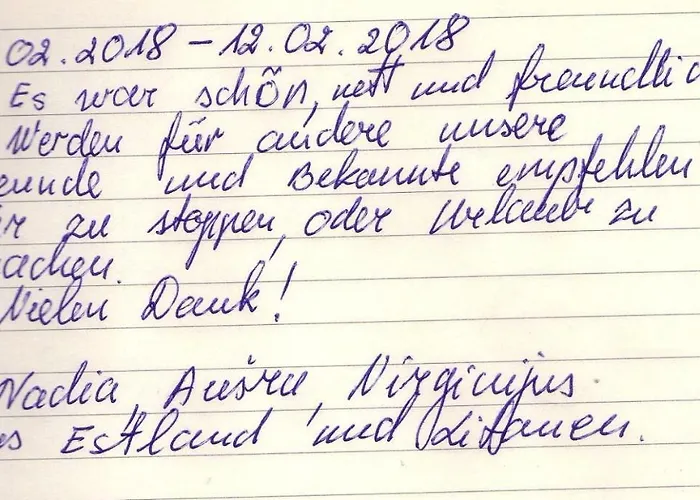 02.2018 – 12.02.2018
Es war schön, nett und freundlic
Werden für andere unsere
eunde und Bekannte empfehlen
er zu stoppen, oder Urlaub zu
achen.
Vielen Dank!
Nadia, Aušra, Virginijus
s Estland und Litauen.